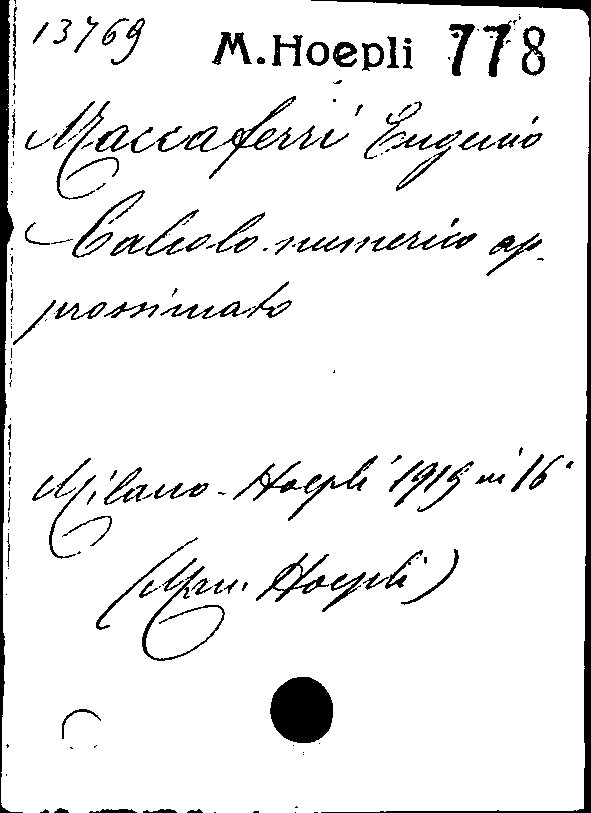 13769 M.Hoepli 778
Maccaferri Eugenio
Calcolo numerico ap-
prossimato
Milano - Hoepli 1919 in 16°
(Man. Hoepli)